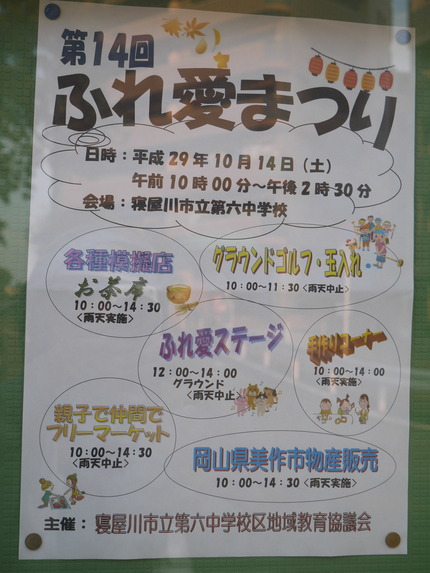 第14回
ふれ愛まつり
日時：平成29年10月14日（土）
午前10時00分～午後2時30分
会場：寝屋川市立第六中学校
各種模擬店
お茶席
10：00～14：30
<雨天実施>
グラウンドゴルフ・玉入れ
10：00～11：30 <雨天中止>
ふれ愛ステージ
12：00～14：00
グラウンド
<雨天中止>
手作りコーナー
10：00～14：00
<雨天実施>
親子で仲間で
フリーマーケット
10：00～14：30
<雨天中止>
岡山県美作市物産販売
10：00～14：30 <雨天実施>
主催：寝屋川市立第六中学校区地域教育協議会